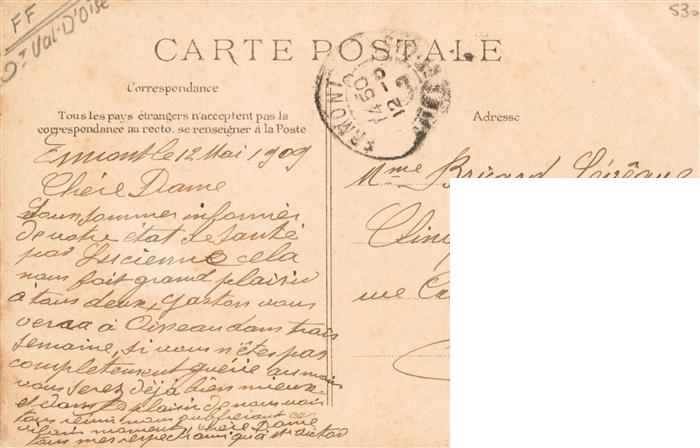 FF
Val-D'Oise
53
CARTE POSTALE
Correspondance
Tous les pays étrangers n'acceptent pas la
correspondance au recto. se renseigner à la Poste
Adresse
ERMONT
14 50
12 - 5
Ermont le 12 Mai 1909
Chère Dame
Nous sommes informés
de votre état de santé
par Lucienne cela
nous fait grand plaisir
à tous deux, Gaston vous
verra à Oiseau dans trois
semaine, si vous n'êtes pas
complètement guérie au moins
vous serez déjà bien mieux
et dans le plaisir de nous voir
tous réuni nous oublieront ce
vilain moment, chère Dame
tous mes respects ainsi qu'à
Mme Bricard Lévêque
rue